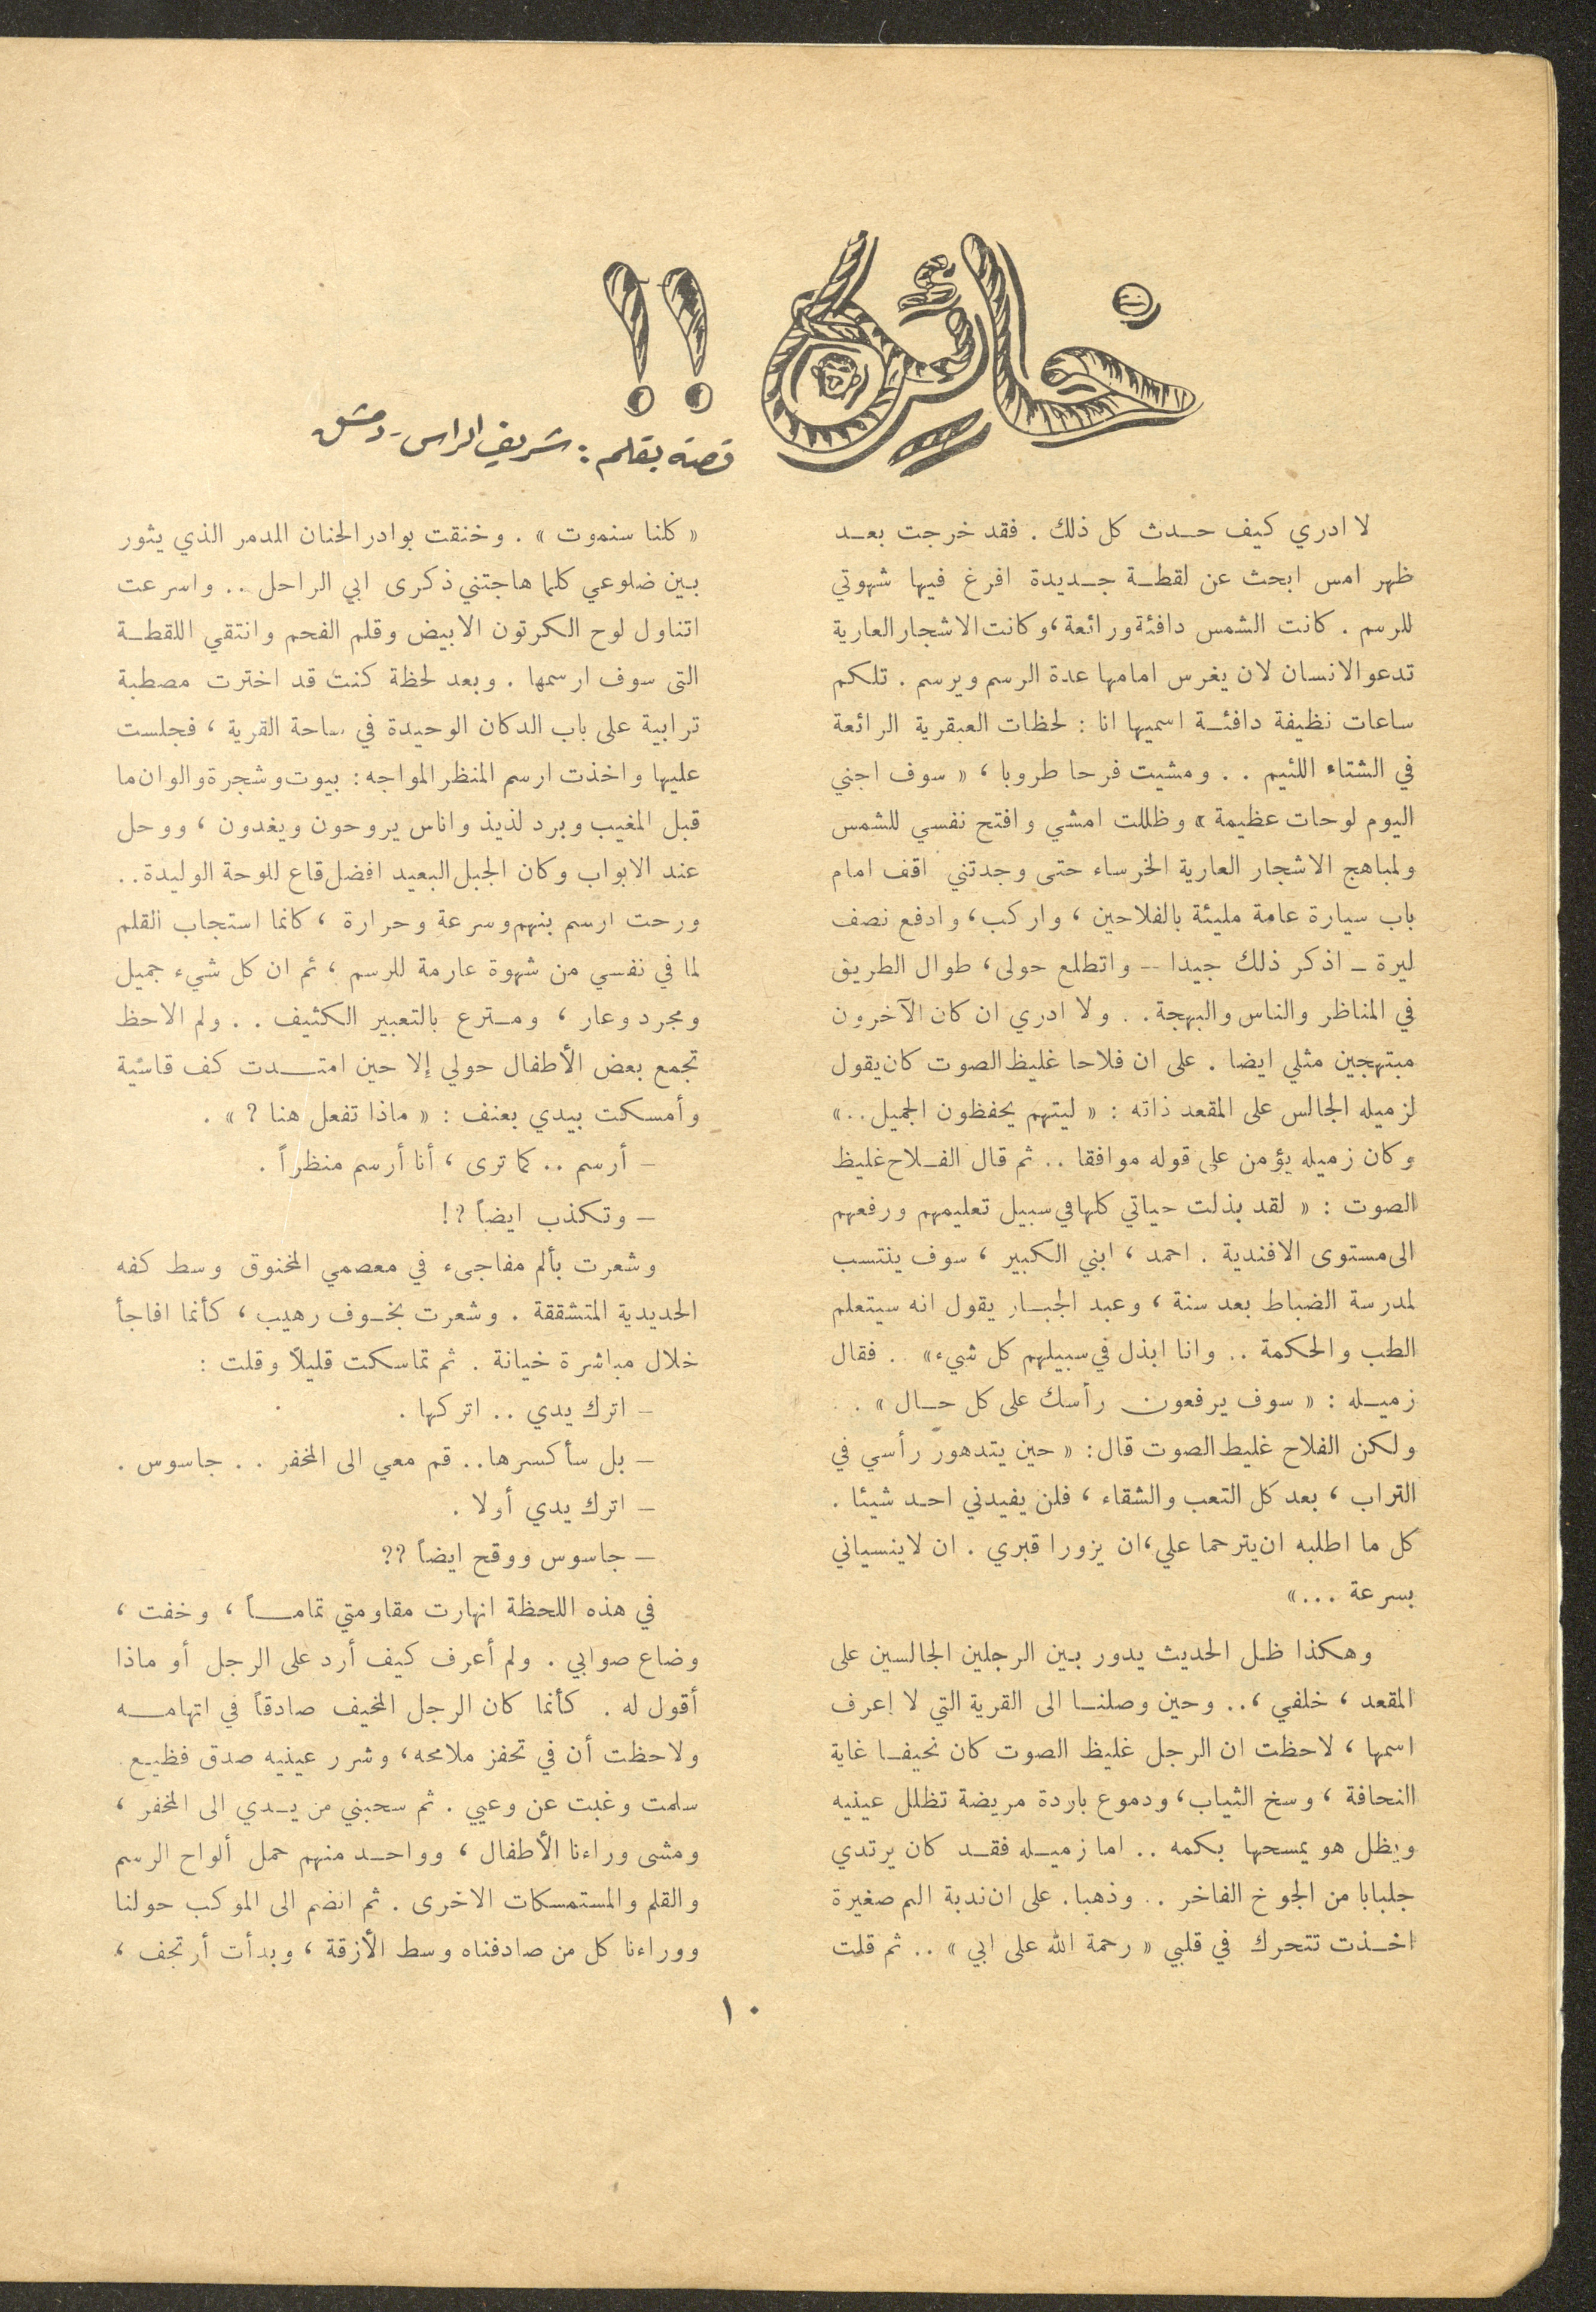 خائن !!
قصة بقلم : شريف الراس - دمشق
لا ادري كيف حـدث كل ذلك . فقد خرجت بعـد
ظهر امس ابحث عن لقطـة جـديدة افرغ فيها شهوتي
للرسم . كانت الشمس دافئة ورائعة ، وكانت الاشجار العارية
تدعو الانسان لان يغرس امامها عدة الرسم ويرسم . تلكم
ساعات نظيفة دافئـة اسميها انا : لحظات العبقرية الرائعة
في الشتاء اللئيم . . ومشيت فرحا طروبا ، « سوف اجني
اليوم لوحات عظيمة » وظللت امشي وافتح نفسي للشمس
ولمباهج الاشجار العارية الخرساء حتى وجدتني اقف امام
باب سيارة عامة مليئة بالفلاحين ، واركب ، وادفع نصف
ليرة – اذكر ذلك جيدا -- واتطلع حولى ، طوال الطريق
في المناظر والناس والبهجة . . ولا ادري ان كان الآخرون
مبتهجين مثلي ايضا . على ان فلاحا غليظ الصوت كان يقول
لزميله الجالس على المقعد ذاته : « ليتهم يحفظون الجميل .. »
وكان زميله يؤمن على قوله موافقا .. ثم قال الفـلاح غليظ
الصوت : « لقد بذلت حياتي كلها في سبيل تعليمهم ورفعهم
الى مستوى الافندية . احمد ، ابني الكبير ، سوف ينتسب
لمدرسة الضباط بعد سنة ، وعبد الجبـار يقول انه سيتعلم
الطب والحكمة .. وانا ابذل في سبيلهم كل شيء » . . فقال
زميـله : « سوف يرفعون رأسك على كل حـال » . .
ولكن الفلاح غليط الصوت قال : « حين يتدهور رأسي في
التراب ، بعد كل التعب والشقاء ، فلن يفيدني احـد شيئا .
كل ما اطلبه ان يترحما علي ، ان يزورا قبري . ان لا ينسياني
بسرعة ... »
وهكذا ظـل الحديث يدور بـين الرجلين الجالسين على
المقعد ، خلفي ، .. وحين وصلنـا الى القرية التي لا اعرف
اسمها ، لاحظت ان الرجل غليظ الصوت كان نحيفـا غاية
النحافة ، وسخ الثياب ، ودموع باردة مريضة تظلل عينيه
ويظل هو يمسحها بكمه .. اما زميـله فقـد كان يرتدي
جلبابا من الجوخ الفاخر .. وذهبا . على ان ندبة الم صغيرة
اخـذت تتحرك في قلبي « رحمة الله على ابي » .. ثم قلت
« كلنا سنموت » . وخنقت بوادر الحنان المدمر الذي يثور
بـين ضلوعي كلما هاجتني ذكرى ابي الراحل .. واسرعت
اتناول لوح الكرتون الابيض وقلم الفحم وانتقي اللقطـة
التى سوف ارسمها . وبعد لحظة كنت قد اخترت مصطبة
ترابية على باب الدكان الوحيدة في ساحة القرية ، فجلست
عليها واخذت ارسم المنظر المواجه : بيوت وشجرة والوان ما
قبل المغيب وبرد لذيذ واناس يروحون ويغدون ، ووحل
عند الابواب وكان الجبل البعيد افضل قاع للوحة الوليدة ..
ورحت ارسم بنهم وسرعة وحرارة ، كانما استجاب القلم
لما في نفسي من شهوة عارمة للرسم ، ثم ان كل شيء جميل
ومجرد وعار ، ومـترع بالتعبير الكثيف . . ولم الاحظ
تجمع بعض الأطفال حولي إلا حين امتـدت كف قاسية
وأمسكت بيدي بعنف : « ماذا تفعل هنا ? » .
– أرسم .. كما ترى ، أنا أرسم منظراً .
– وتكذب ايضاً ?!
وشعرت بألم مفاجىء في معصمي المخنوق وسط كفه
الحديدية المتشققة . وشعرت بخـوف رهيب ، كأنما افاجأ
خلال مباشرة خيانة . ثم تماسكت قليلاً وقلت :
– اترك يدي .. اتركها .
– بل سأكسرها .. قم معي الى المخفر . . جاسوس .
– اترك يدي أولا .
– جاسوس ووقح ايضاً ??
في هذه اللحظة انهارت مقاومتي تمامـاً ، وخفت ،
وضاع صوابي . ولم أعرف كيف أرد على الرجل أو ماذا
أقول له . كأنما كان الرجل المخيف صادقاً في اتهامـه
ولاحظت أن في تحفز ملامحه ، وشرر عينيه صدق فظيـع .
سلمت وغبت عن وعيي . ثم سحبني من يـدي الى المخفر ،
ومشى وراءنا الأطفال ، وواحـد منهم حمل ألواح الرسم
والقلم والمستمسكات الاخرى . ثم انضم الى الموكب حولنا
ووراءنا كل من صادفناه وسط الأزقة ، وبدأت أرتجف ،
١٠